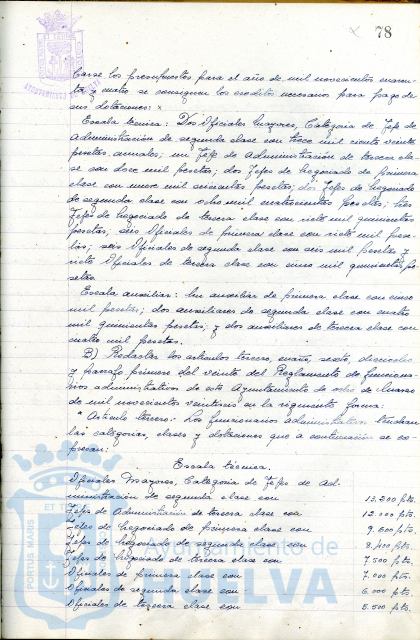 78
barse los presupuestos para el año de mil novecientos cuaren-
ta y cuatro se consignen los creditos necesarios para pago de
sus dotaciones:
Escala técnica: Dos Oficiales Mayores, Categoria de Jefe de
Administración de segunda clase con trece mil ciento veinte
pesetas anuales; un Jefe de Administración de tercera cla-
se con doce mil pesetas; dos Jefes de Negociado de primera
clase con nueve mil seiscientas pesetas; dos Jefes de Negociado
de segunda clase con ocho mil cuatrocientas pesetas; tres
Jefes de Negociado de tercera clase con siete mil quinientas
pesetas; seis Oficiales de primera clase con siete mil pese-
tas; seis Oficiales de segunda clase con seis mil pesetas y
siete Oficiales de tercera clase con cinco mil quinientas pe-
setas.
Escala auxiliar: Un auxiliar de primera clase con cinco
mil pesetas; dos auxiliares de segunda clase con cuatro
mil quinientas pesetas; y dos auxiliares de tercera clase con
cuatro mil pesetas.
B) Redactar los articulos tercero, cuarto, sexto,
y parrafo primero del veinte del Reglamento de funciona-
rios administrativos de este Ayuntamiento de ocho de Marzo
de mil novecientos veintiseis en la siguiente forma:
"Articulo tercero: Los funcionarios administrativos tendran
las categorias, clases y dotaciones que a continuación se ex-
presan:
Escala técnica.
Oficiales Mayores, Categoria de Jefes de Ad-
ministración de segunda clase con 13.200 pts.
Jefes de Administración de tercera clase con 12.000 pts.
Jefes de Negociado de primera clase con 9.600 pts.
Jefes de Negociado de segunda clase con 8.400 pts.
Jefes de Negociado de tercera clase con 7.500 pts.
Oficiales de primera clase con 7.000 pts.
Oficiales de segunda clase con 6.000 pts.
Oficiales de tercera clase con 5.500 pts.
Ayuntamiento de
HUELVA
PORTUS MARIS